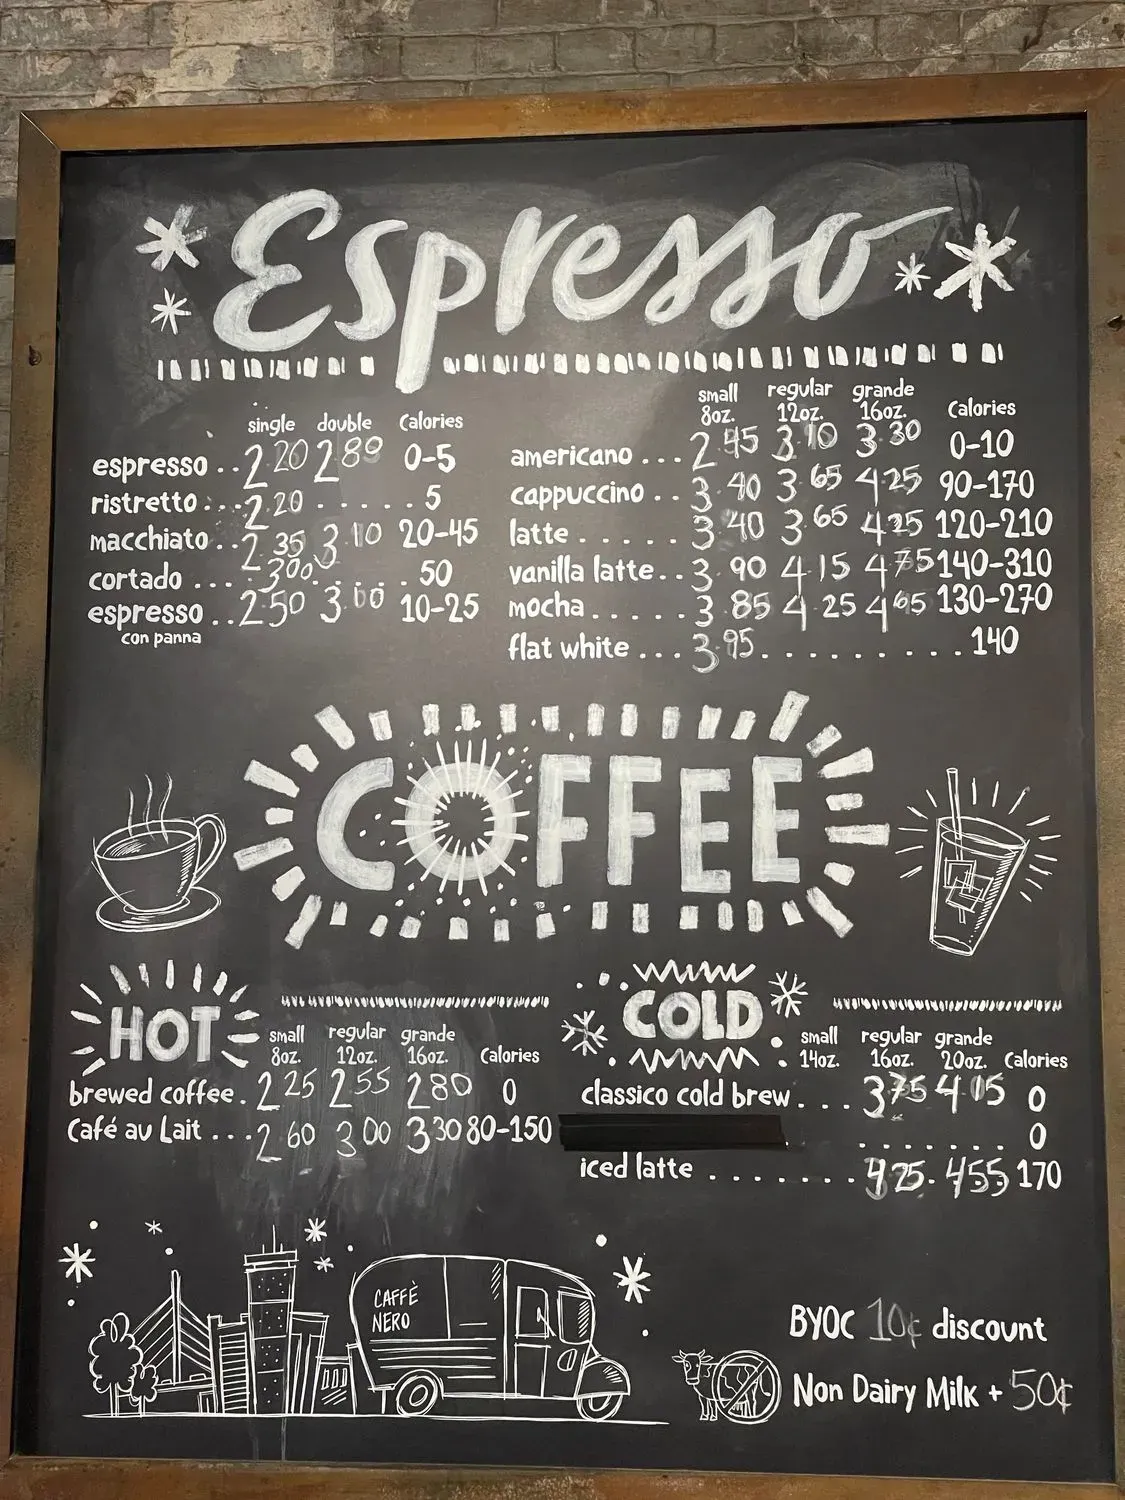 Espresso
single double Calories
espresso .. 2.20 2.80 0-5
ristretto ... 2.20 ..... 5
macchiato .. 2.35 3.10 20-45
cortado .... 3.00 ..... 50
espresso .. 2.50 3.00 10-25
con panna
small regular grande
8oz. 12oz. 16oz. Calories
americano ... 2.45 3.10 3.30 0-10
cappuccino .. 3.40 3.65 4.25 90-170
latte ...... 3.40 3.65 4.25 120-210
vanilla latte .. 3.90 4.15 4.75 140-310
mocha ..... 3.85 4.25 4.65 130-270
flat white ... 3.95 .......... 140
COFFEE
HOT
small regular grande
8oz. 12oz. 16oz. Calories
brewed coffee . 2.25 2.55 2.80 0
Café au Lait ... 2.60 3.00 3.30 80-150
COLD
small regular grande
14oz. 16oz. 20oz. Calories
classico cold brew ... 3.75 4.15 0
....... 0
iced latte ....... 4.25 . 4.55 170
CAFFÈ
NERO
BYOC 10¢ discount
Non Dairy Milk + 50¢